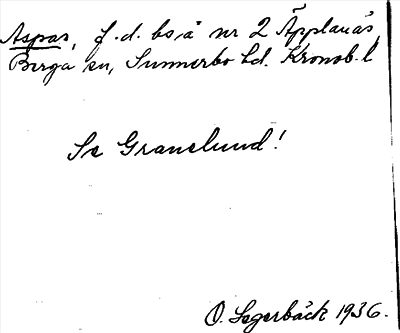 Aspas, f.d. bs å nr 2 Äpplanäs,
Berga sn, Sunnerbo hd. Kronob. l
Se Granelund!
O. Segerbäck 1936.